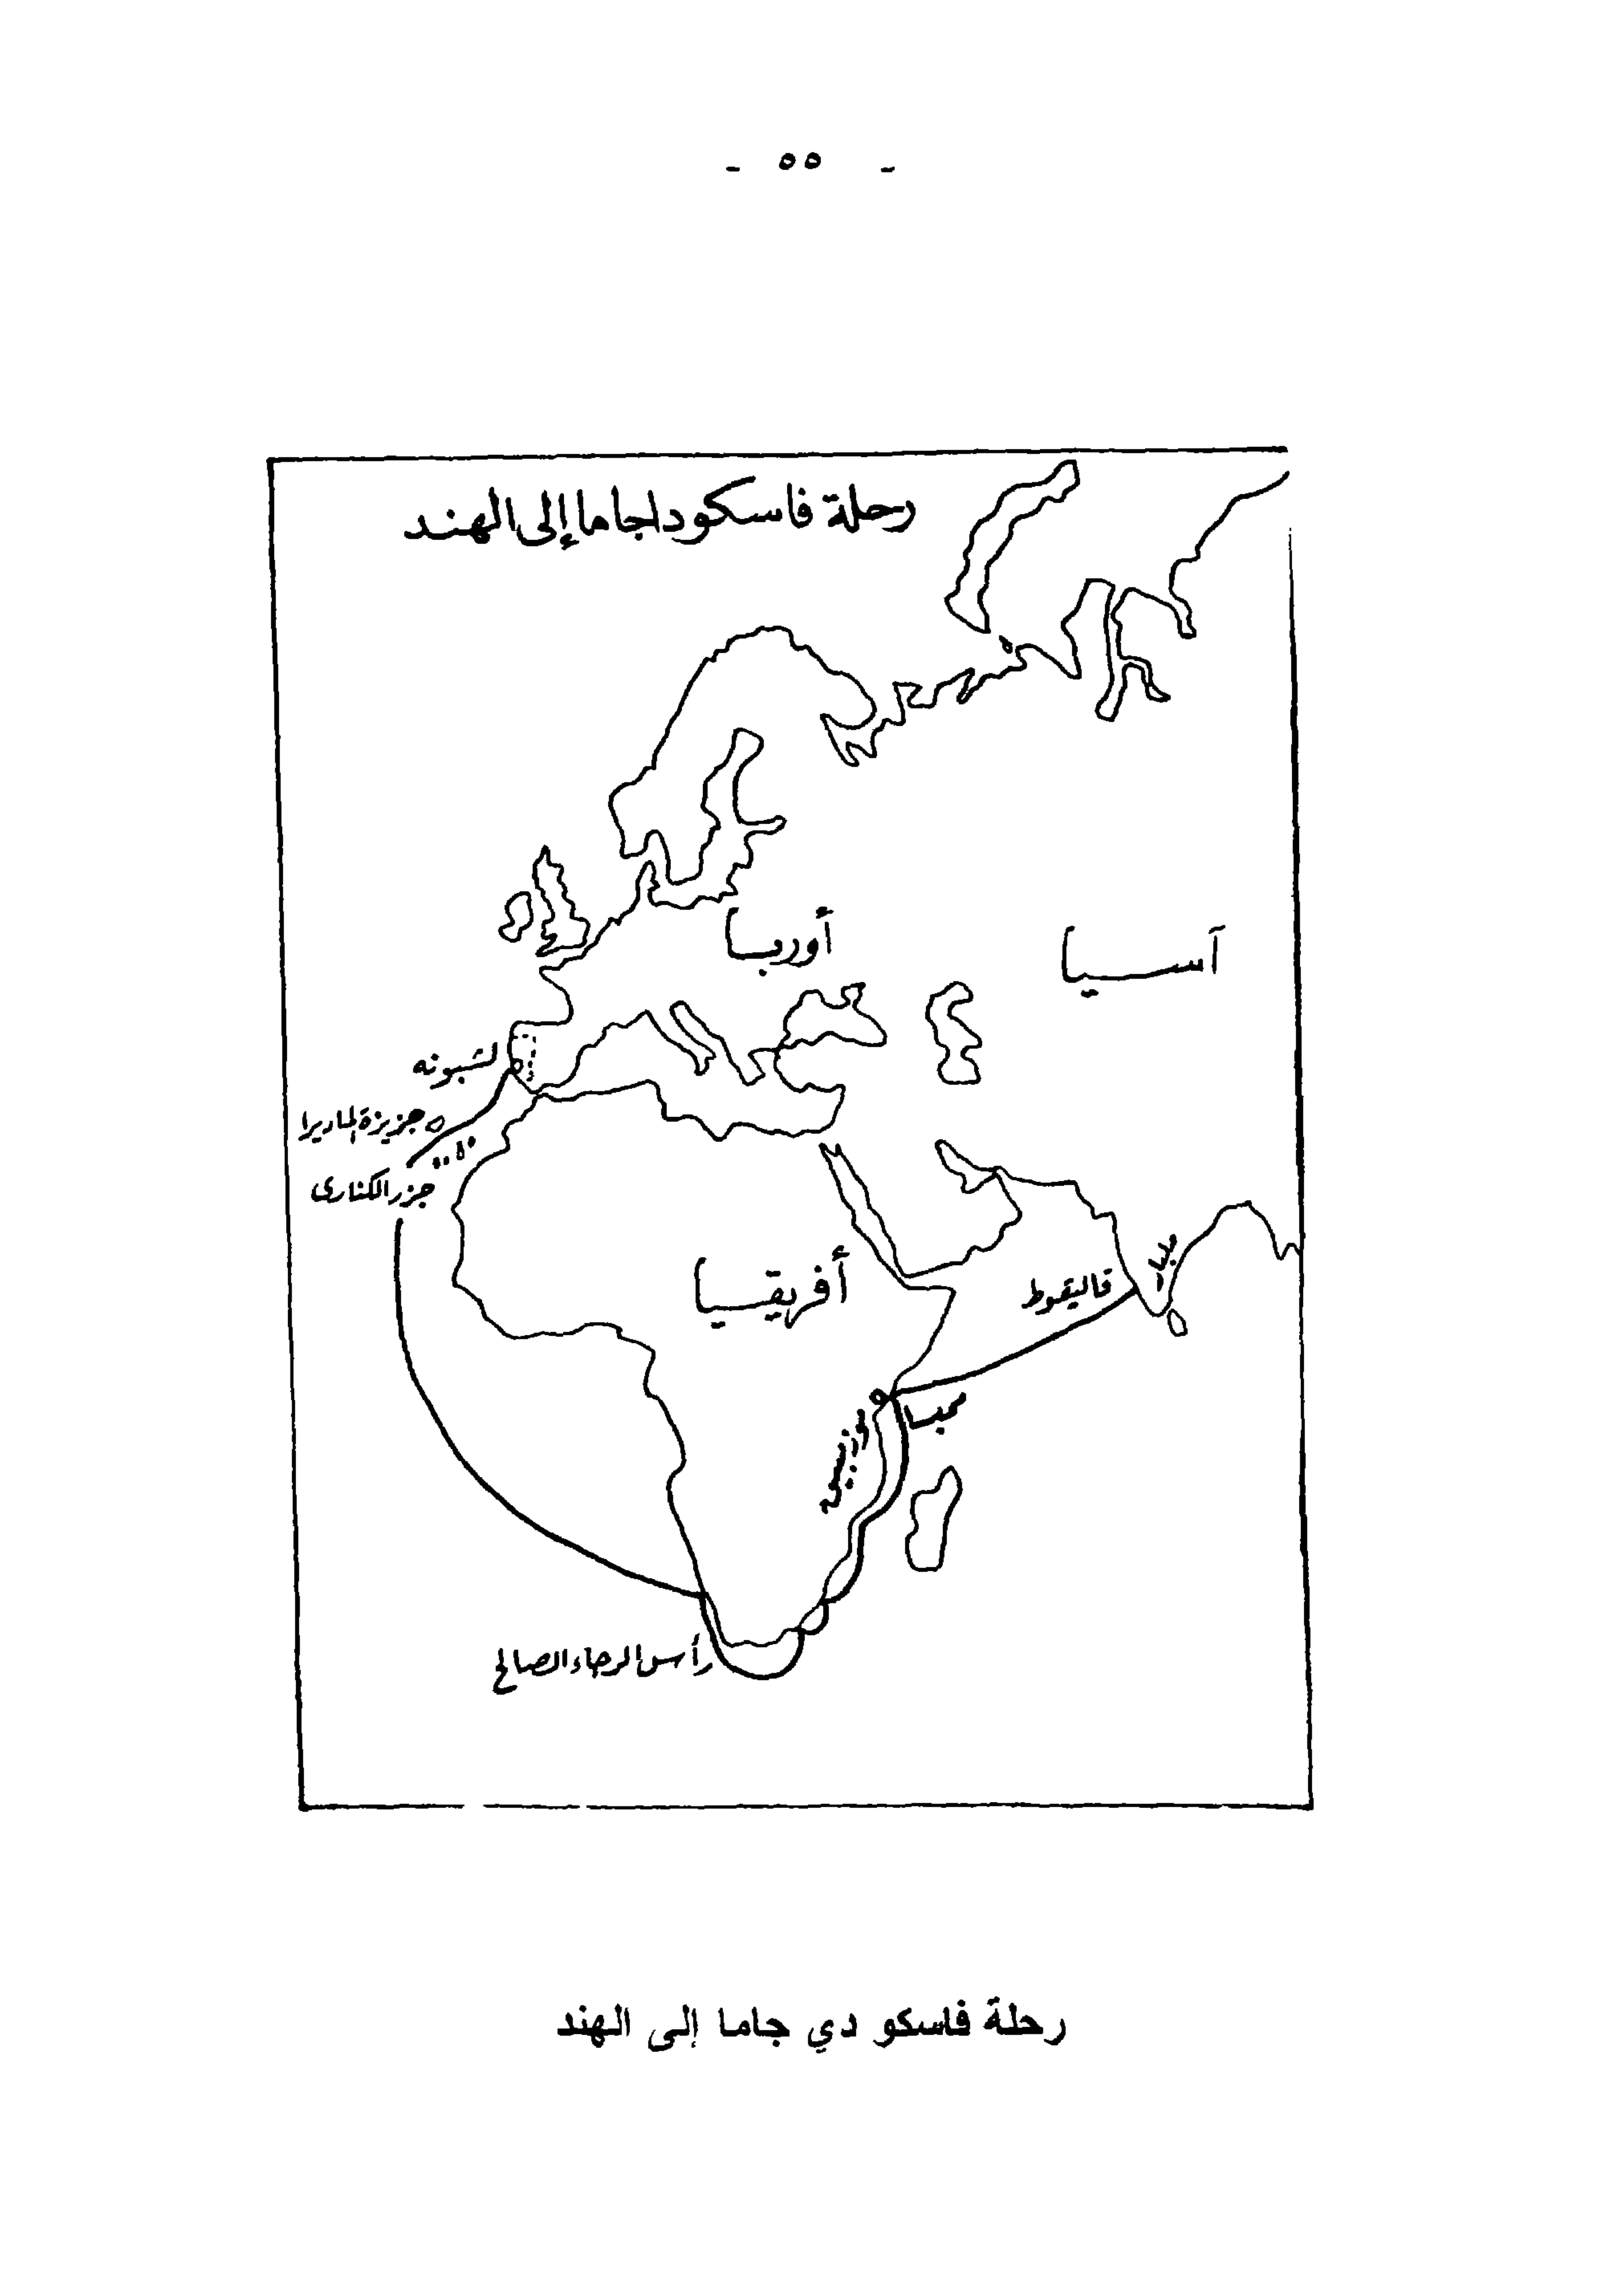 - ٥٥ -
رحلة فاسكوداجاما إلى الهند
أوربا
آسيا
لشبونه
جزيزة الماديرا
جزر الكنارى
أفريقيا
قاليقوط
ممبسا
رأس الرجاء الصالح
رحلة فاسكو دي جاما إلى الهند